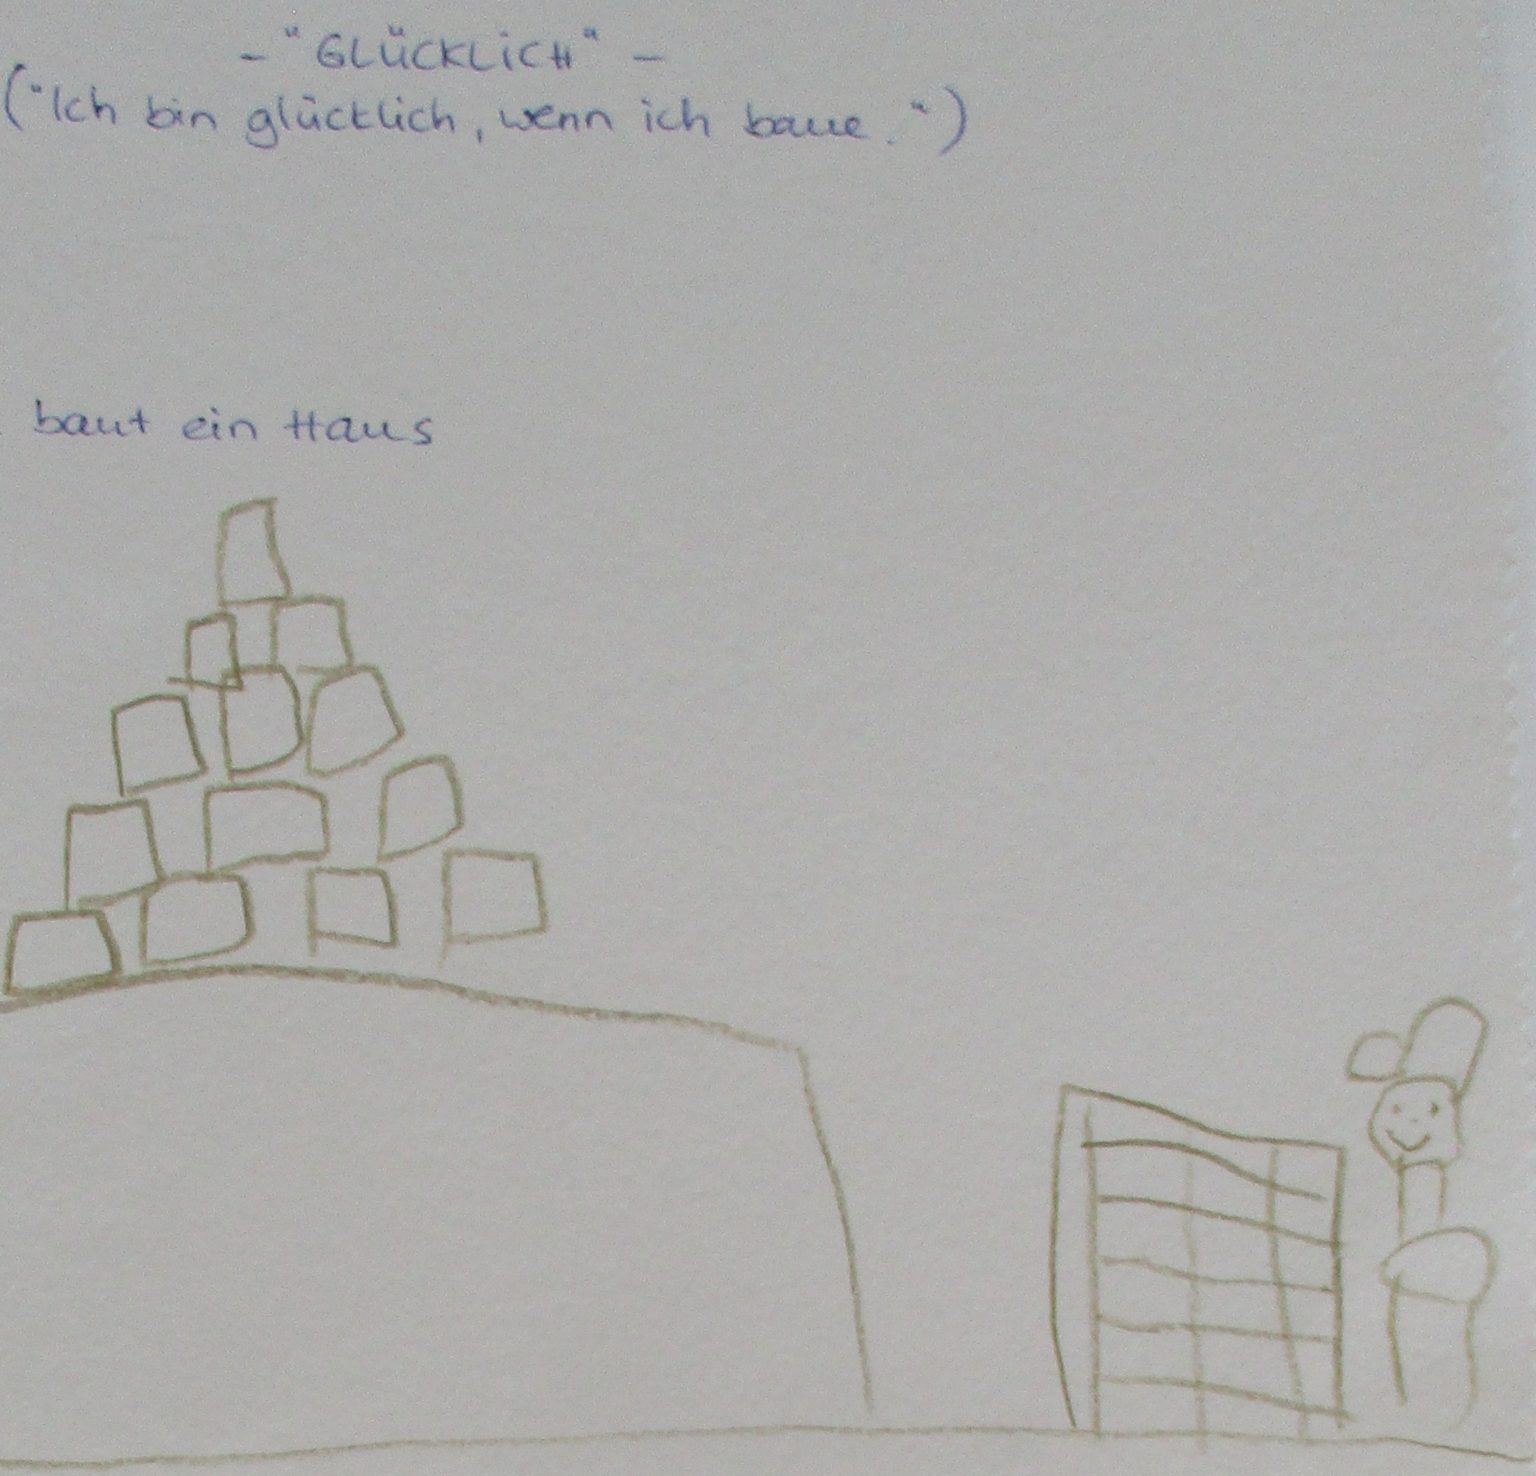 - "GLÜCKLiCH" -
("Ich bin glücklich, wenn ich baue.")
baut ein Haus